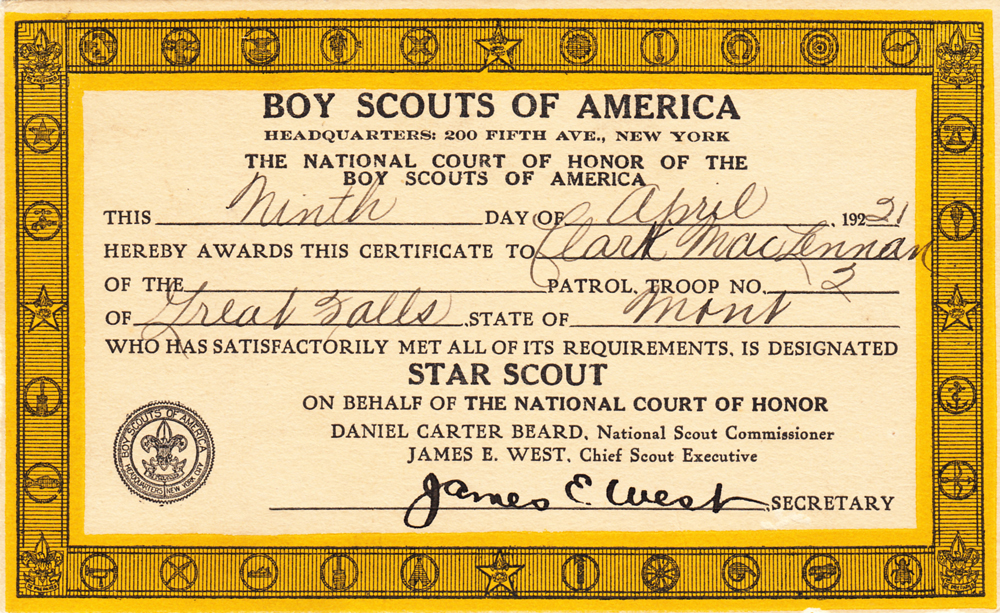 BOY SCOUTS OF AMERICA
HEADQUARTERS: 200 FIFTH AVE., NEW YORK
THE NATIONAL COURT OF HONOR OF THE
BOY SCOUTS OF AMERICA
THIS Ninth DAY OF April, 192 21
HEREBY AWARDS THIS CERTIFICATE TO Clark MacLennan
OF THE PATROL, TROOP NO. 3
OF Great Falls, STATE OF Mont
WHO HAS SATISFACTORILY MET ALL OF ITS REQUIREMENTS, IS DESIGNATED
STAR SCOUT
ON BEHALF OF THE NATIONAL COURT OF HONOR
DANIEL CARTER BEARD, National Scout Commissioner
JAMES E. WEST, Chief Scout Executive
James E. West, SECRETARY
BOY SCOUTS OF AMERICA
HEADQUARTERS NEW YORK CITY